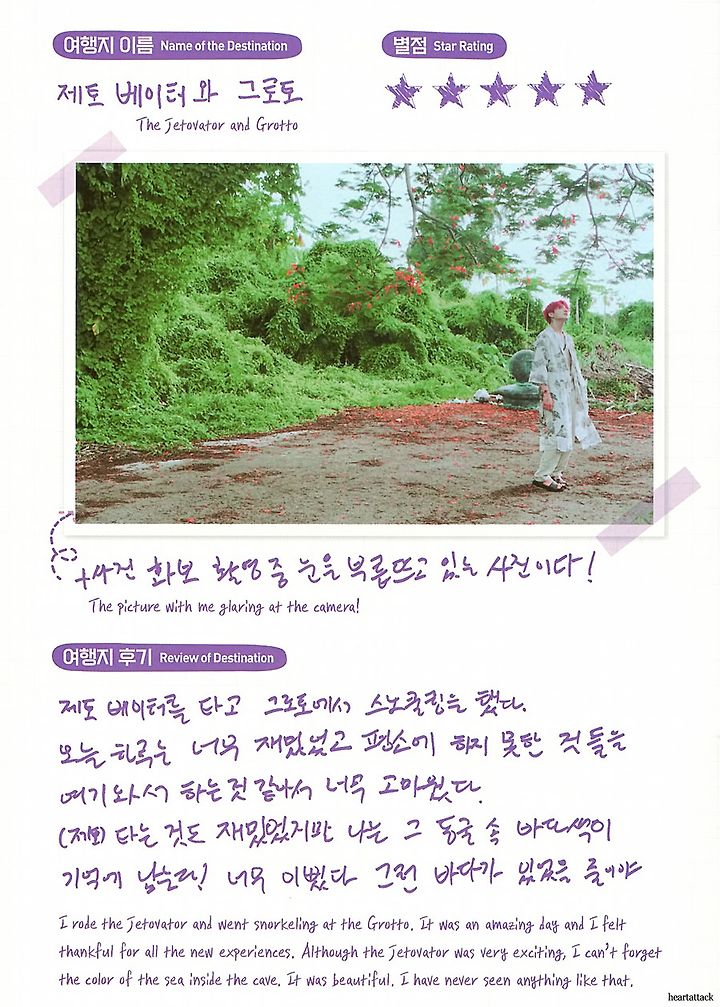 여행지 이름 Name of the Destination
별점 Star Rating
제토 베이터와 그로토
The Jetovator and Grotto
+사진 화보 촬영 중 눈을 부릅뜨고 있는 사진이다!
The picture with me glaring at the camera!
여행지 후기 Review of Destination
제토 베이터를 타고 그로토에서 스노쿨링을 했다.
오늘 하루는 너무 재밌었고 평소에 하지 못한 것들을
여기 와서 하는것 같아서 너무 고마웠다.
(제토) 타는 것도 재밌었지만 나는 그 동굴 속 바다색이
기억에 남는다! 너무 이뻤다 그런 바다가 있었을 줄이야
I rode the Jetovator and went snorkeling at the Grotto. It was an amazing day and I felt
thankful for all the new experiences. Although the Jetovator was very exciting, I can't forget
the color of the sea inside the cave. It was beautiful. I have never seen anything like that.
heartattack